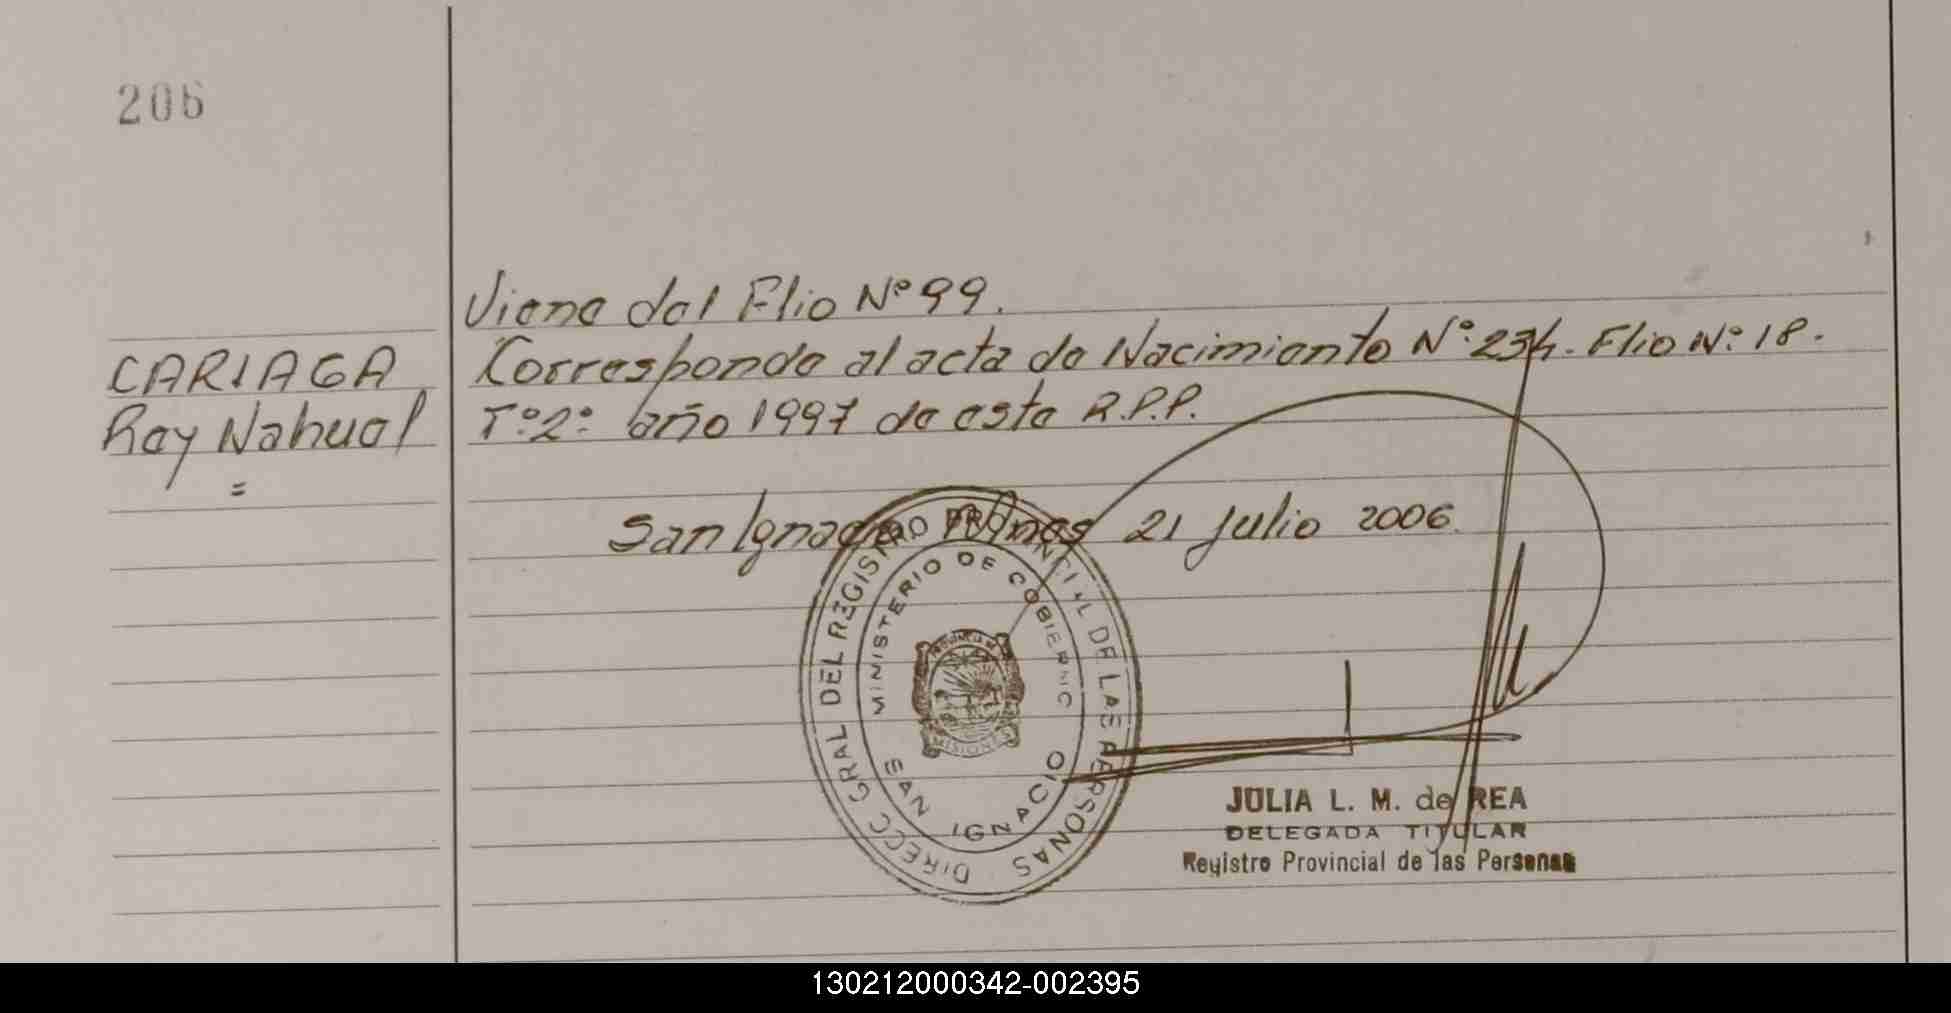 206
Viene del Flio Nº 99.
CARIAGA
Corresponde al acta de Nacimiento Nº: 234. Flio Nº: 18.
Rey Nahuel
Tº: 2º: año 1997 de este R.P.P.
=
San Ignacio Mnes 21 Julio 2006.
DIRECC GRAL DEL REGISTRO PROVINCIAL DE LAS PERSONAS
MINISTERIO DE GOBIERNO
MISIONES
SAN IGNACIO
JULIA L. M. de REA
DELEGADA TITULAR
Registro Provincial de las Personas
130212000342-002395